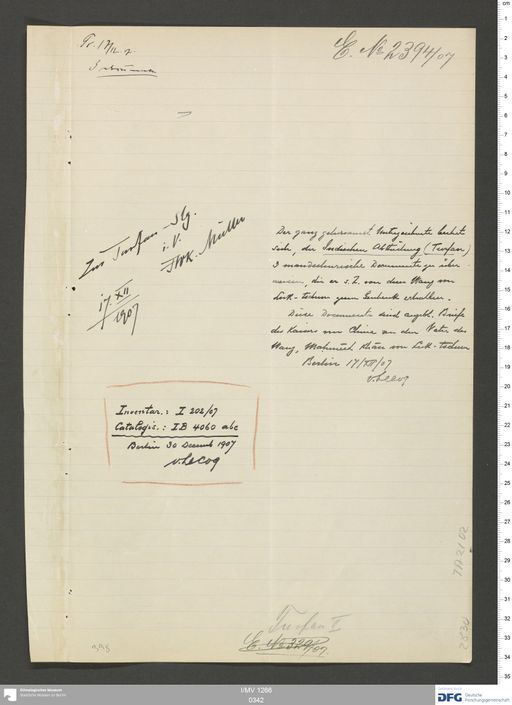 Pr. 17/12. 7.
E. № 2394/07
Zur Turfan-Slg.
i. V.
FWK. Müller
17. XII
1907
Der ganz gehorsamst Unterzeichnete beehrt
sich, der Indischen Abtheilung (Turfan)
3 mandschurische Documente zu über-
weisen, die er s. Z. von dem Wang von
Luk-tschun zum Geschenk erhalten.
Diese Documente sind angebl. Briefe
des Kaisers von China an den Vater des
Wang, Mahmud, Khan von Luk-tschun
Berlin 17/XII/07
v. LeCoq
Inventar.: I 202/07
Catalogis.: IB 4060 abc
Berlin 30 Decemb 1907
v. LeCoq
Turfan I
E. № 329/07.
TA 2102
2830
I/MV 1266
0342
Ethnologisches Museum
Staatliche Museen zu Berlin
DFG
Deutsche
Forschungsgemeinschaft
cm
1
2
3
4
5
6
7
8
9
10
11
12
13
14
15
16
17
18
19
20
21
22
23
24
25
26
27
28
29
30
31
32
33
34
35